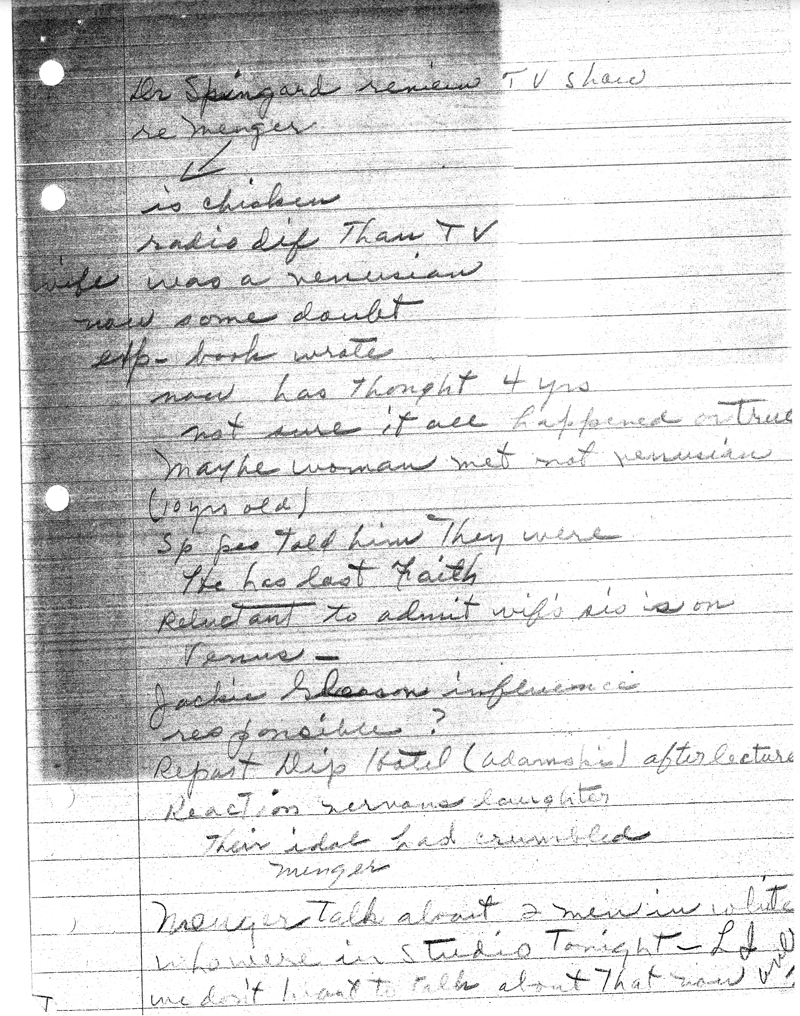 Dr Spingard review TV show
re Menger
is chicken
radio dif Than TV
wife was a venusian
now some doubt
exp- book wrote
now has Thought 4 yrs
not sure it all happened or True
Maybe woman met not venusian
(10 yrs old)
Sp peo Told him They were
He has lost Faith
Reluctant to admit wife's sis is on
Venus —
Jackie Gleason influence
responsible ?
Repast Dip Hotel (adamski) after lecture
Reaction nervous laughter
Their idol had crumbled
Menger
Menger Talk about 2 men in white
who were in studio Tonight - LJ
we don't want to talk about That now